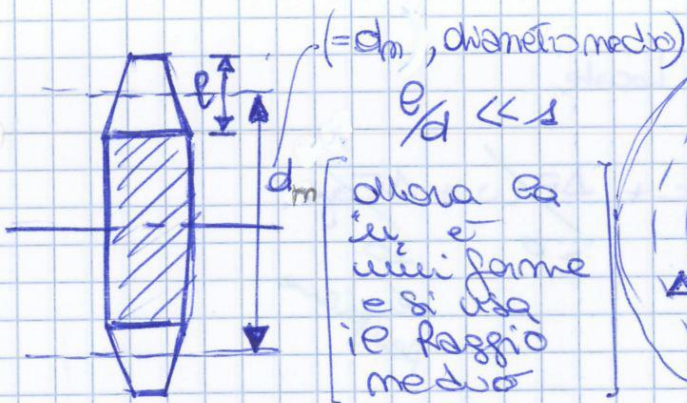 (=dm, diametro medio)
l
l/d << 1
dm
allora la
è
uniforme
e si usa
il Raggio
medio